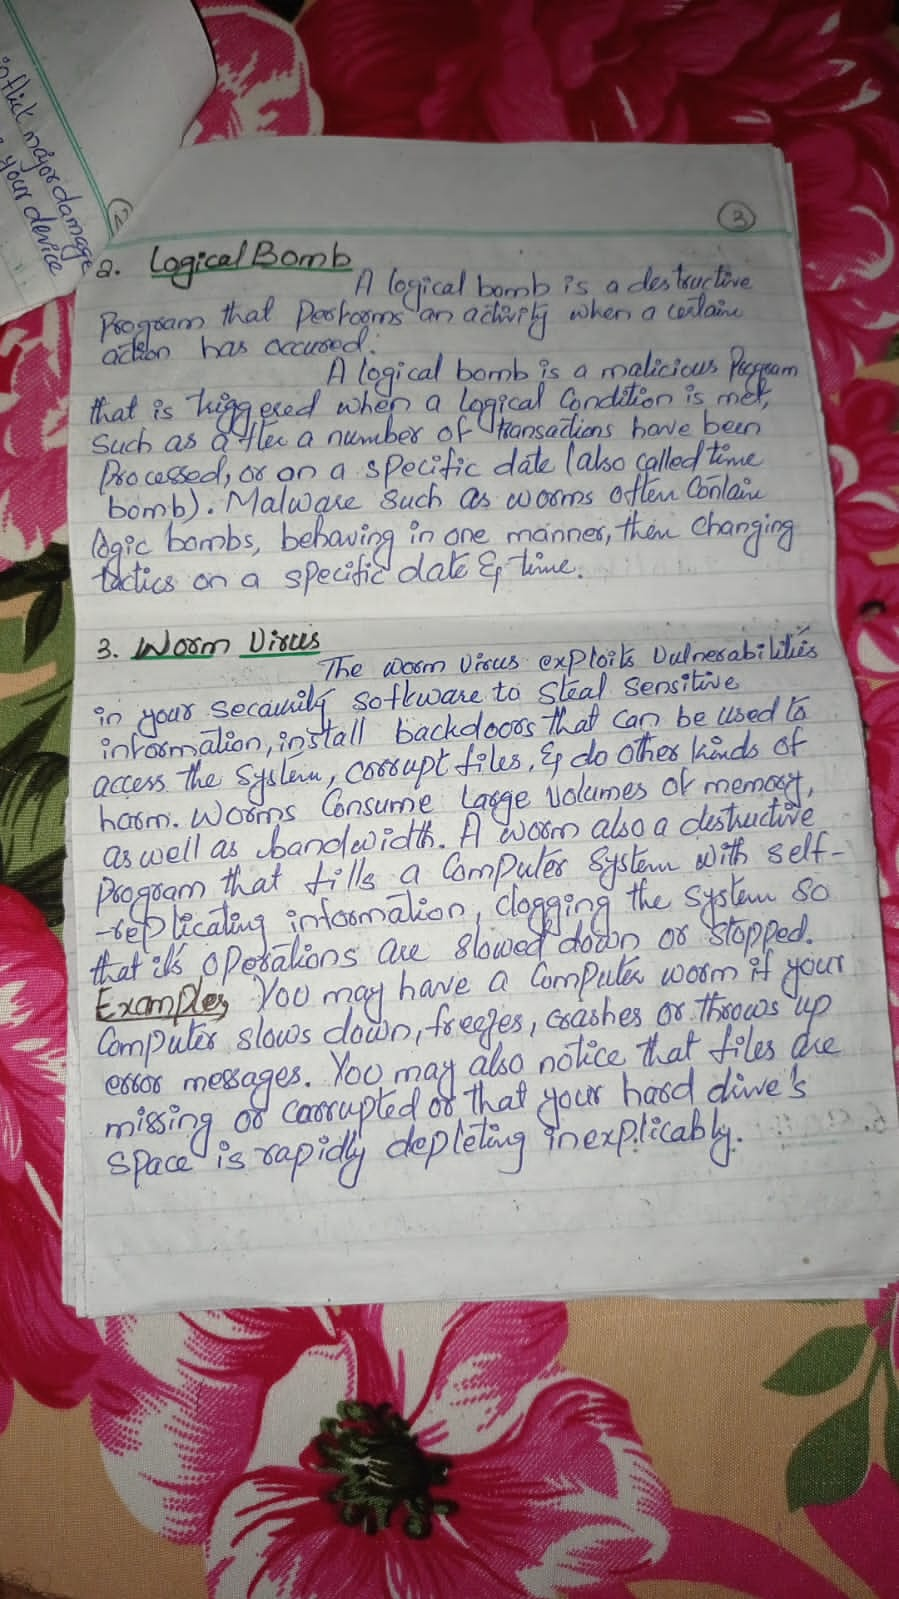 nflict major damage
your device
2
3
2. Logical Bomb
A logical bomb is a destructive
Program that Performs an activity when a certain
action has occured.
A logical bomb is a malicious Program
that is triggered when a Logical Condition is met,
Such as after a number of transactions have been
Processed, or on a specific date (also called time
bomb). Malware Such as worms often Contain
logic bombs, behaving in one manner, then Changing
tactics on a specific date & time.
3. Worm Virus
The worm virus exploits Vulnerabilities
in your secaurity software to Steal Sensitive
information, install backdoors that can be used to
access the System, corrupt files, & do other kinds of
harm. Worms Consume Large Volumes of memory,
as well as bandwidth. A worm also a destructive
Program that fills a Computer System with self-
-replicating information, clogging the system so
that it's operations are slowed down or stopped.
Examples You may have a Computer worm if your
Computer slows down, freezes, crashes or throws up
error messages. You may also notice that files are
missing or Carrupted or that your hard dive's
Space is rapidly depleting inexplicably.